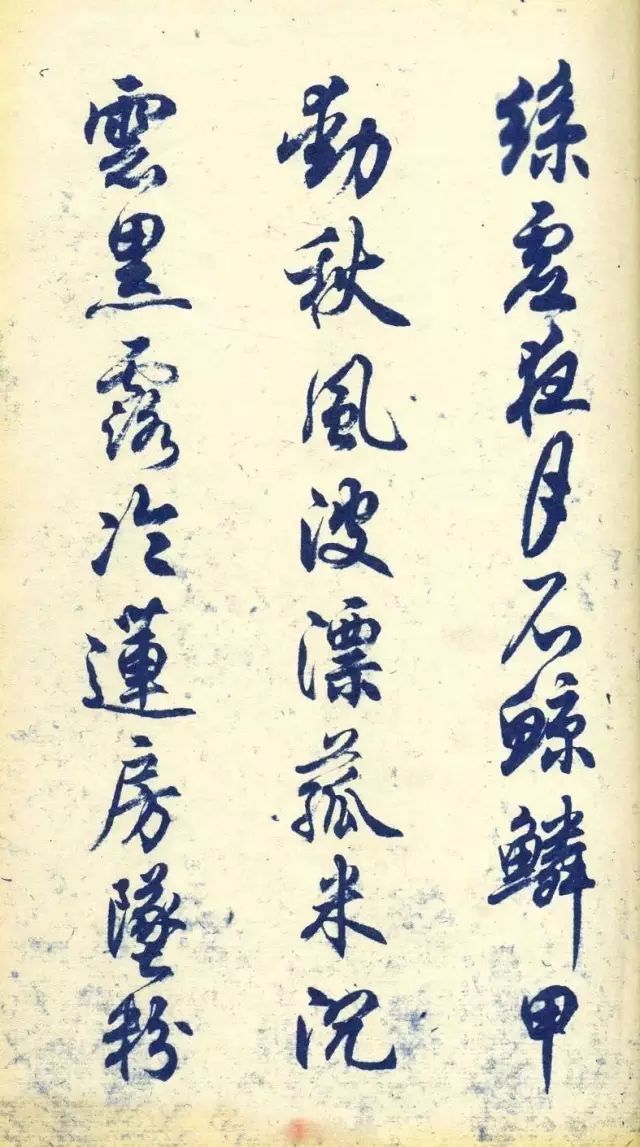 絲虛夜月石鯨鱗甲
動秋風波漂菰米沉
雲黑露冷蓮房墜粉